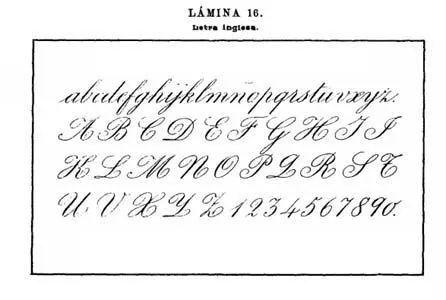 LÁMINA 16.
Letra inglesa.
abcdefghijklmnñopqrstuvxyz.
A B C D E F G H I J
K L M N O P Q R S T
U V X Y Z 1234567890.